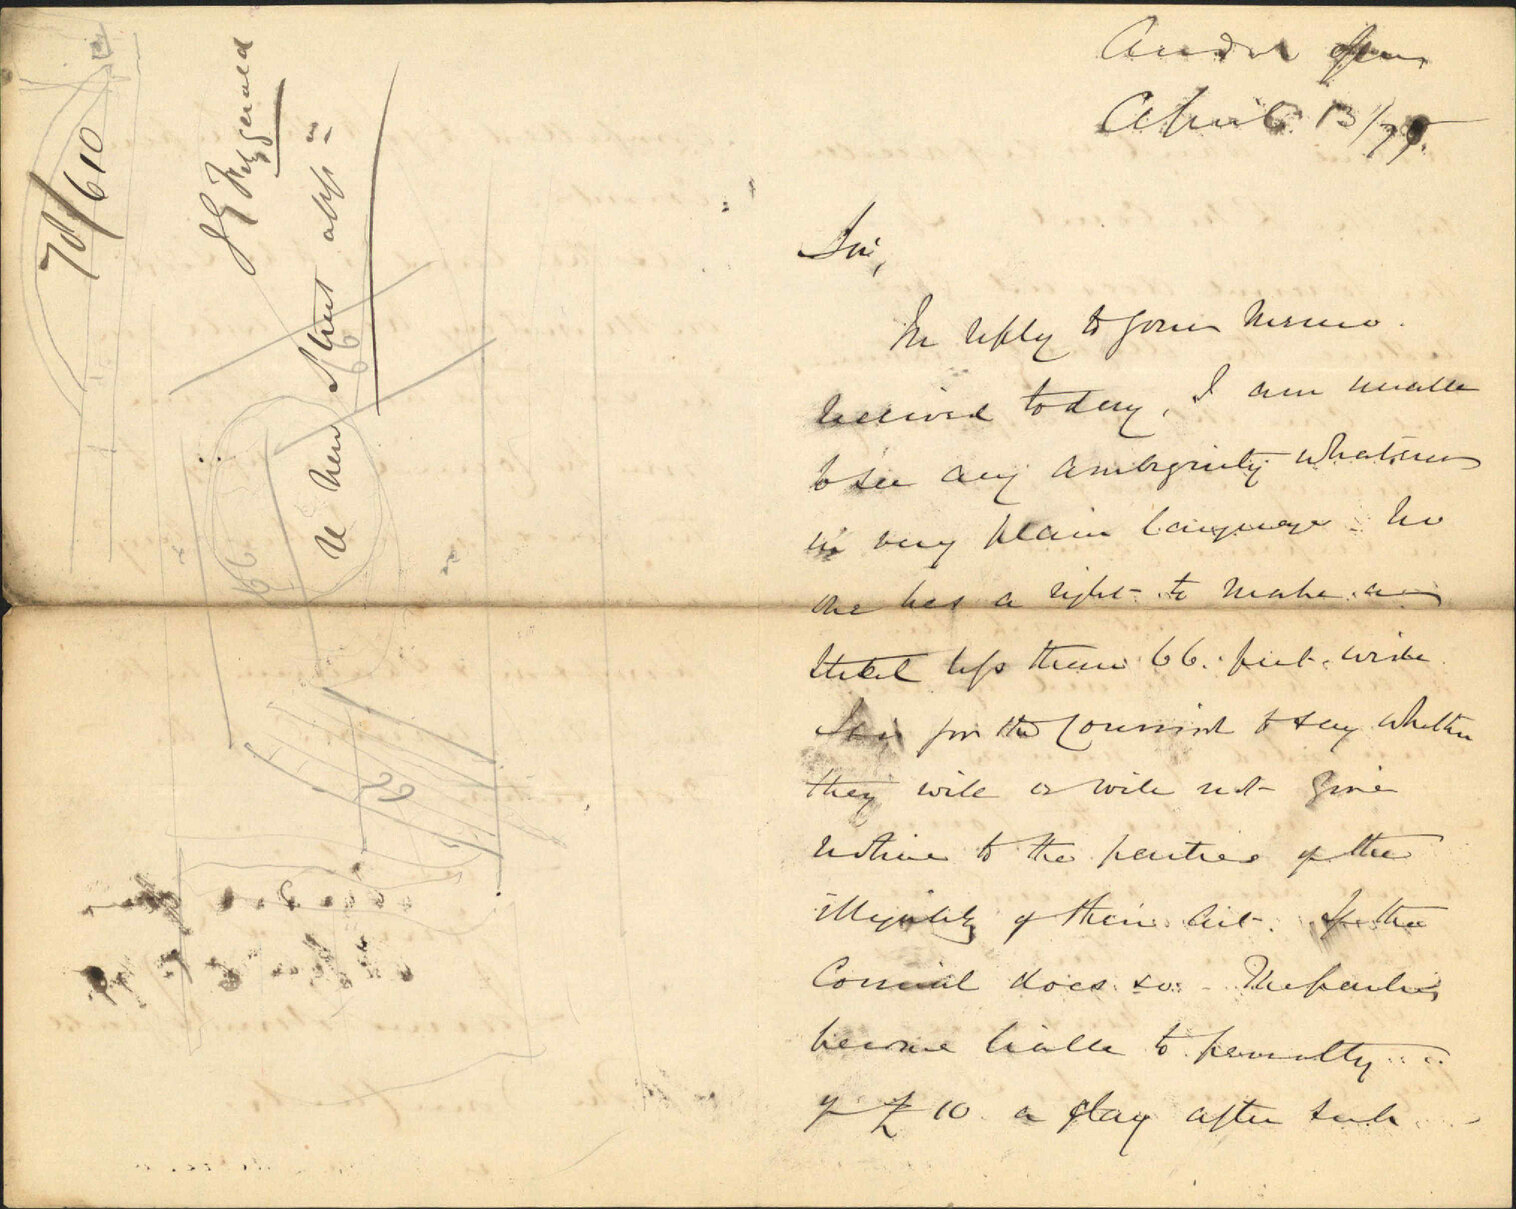 78/610
J G Fitzgerald
re New Street allp
66
66
66
April 13/78.
Sir,
In reply to your memo.
received today, I am unable
to see any ambiguity whatever
in very plain language. No
one has a right to make a
street less than 66. feet. wide.
It is for the Council to say whether
they will or will not give
notice to the parties of the
illegality of their act. If the
Council does so. The parties
become liable to penalty
of £10 a day after such